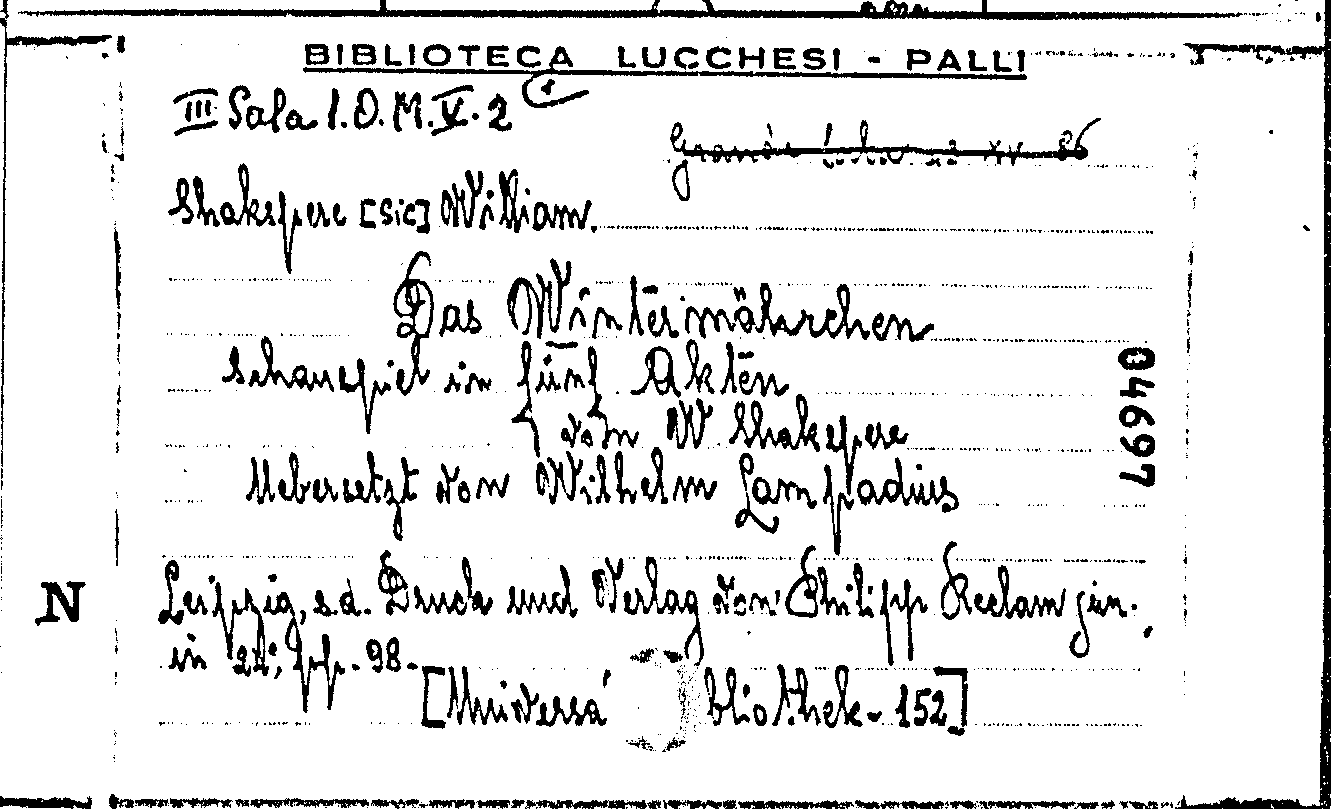 BIBLIOTECA LUCCHESI - PALLI
III Sala 1.O.M.V.2
Shakspere [sic] William.
Das Wintermährchen
Schauspiel in fünf Akten
von W Shakspere
Uebersetzt von Wilhelm Lampadius
04697
N
Leipzig, s.d. Druck und Verlag von Philipp Reclam jun.,
in 24°, pp. 98.
[Universa bliothek - 152]